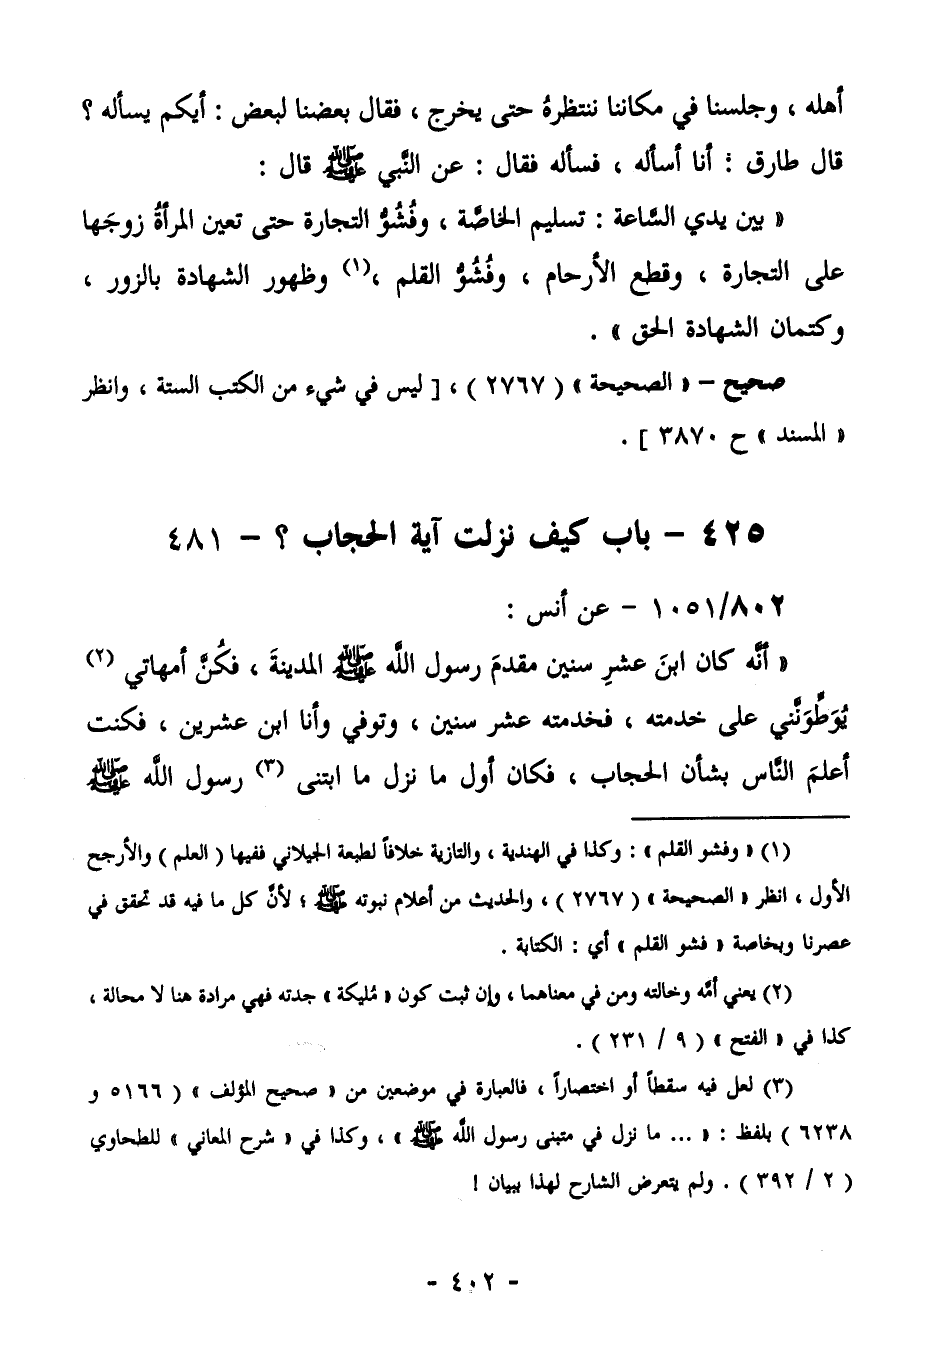 أهله ، وجلسنا في مكاننا ننتظرهُ حتى يخرج ، فقال بعضنا لبعض : أيكم يسأله ؟
قال طارق : أنا أسأله ، فسأله فقال : عن النَّبي ﷺ قال :
« بين يدي السَّاعة : تسليم الخاصَّة ، وفُشُوُّ التجارة حتى تعين المرأةُ زوجَها
على التجارة ، وقطع الأرحام ، وفُشُوُّ القلم ،(١) وظهور الشهادة بالزور ،
وكتمان الشهادة الحق » .
صحيح – « الصحيحة » ( ٢٧٦٧ ) ، [ ليس في شيء من الكتب الستة ، وانظر
« المسند » ح ٣٨٧٠ ] .
٤٢٥ – باب كيف نزلت آية الحجاب ؟ – ٤٨١
١٠٥١/٨٠٢ – عن أنس :
« أنَّه كان ابنَ عشرِ سنين مقدمَ رسول اللَّه ﷺ المدينةَ ، فكُنَّ أمهاتي (٢)
يُوَطِّوَنَّني على خدمته ، فخدمته عشر سنين ، وتوفي وأنا ابن عشرين ، فكنت
أعلمَ النَّاس بشأن الحجاب ، فكان أول ما نزل ما ابتنى (٣) رسول اللَّه ﷺ
(١) « وفشو القلم » : وكذا في الهندية ، والتازية خلافاً لطبعة الجيلاني ففيها ( العلم ) والأرجح
الأول ، انظر « الصحيحة » ( ٢٧٦٧ ) ، والحديث من أعلام نبوته ﷺ ؛ لأنَّ كل ما فيه قد تحقق في
عصرنا وبخاصة « فشو القلم » أي : الكتابة .
(٢) يعني أمَّه وخالته ومن في معناهما ، وإن ثبت كون « مُليكة » جدته فهي مرادة هنا لا محالة ،
كذا في « الفتح » ( ٩ / ٢٣١ ) .
(٣) لعل فيه سقطاً أو اختصاراً ، فالعبارة في موضعين من « صحيح المؤلف » ( ٥١٦٦ و
٦٢٣٨ ) بلفظ : « ... ما نزل في متبنى رسول اللَّه ﷺ » ، وكذا في « شرح المعاني » للطحاوي
( ٢ / ٣٩٢ ) . ولم يتعرض الشارح لهذا ببيان !
- ٤٠٢ -